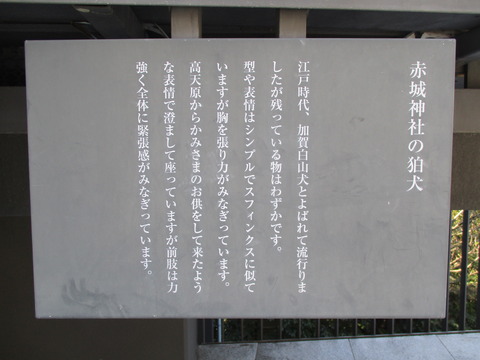 赤城神社の狛犬
江戸時代、加賀白山犬とよばれて流行りま
したが残っている物はわずかです。
型や表情はシンプルでスフィンクスに似て
いますが胸を張り力がみなぎっています。
高天原からかみさまのお供をして来たよう
な表情で澄まして座っていますが前肢は力
強く全体に緊張感がみなぎっています。